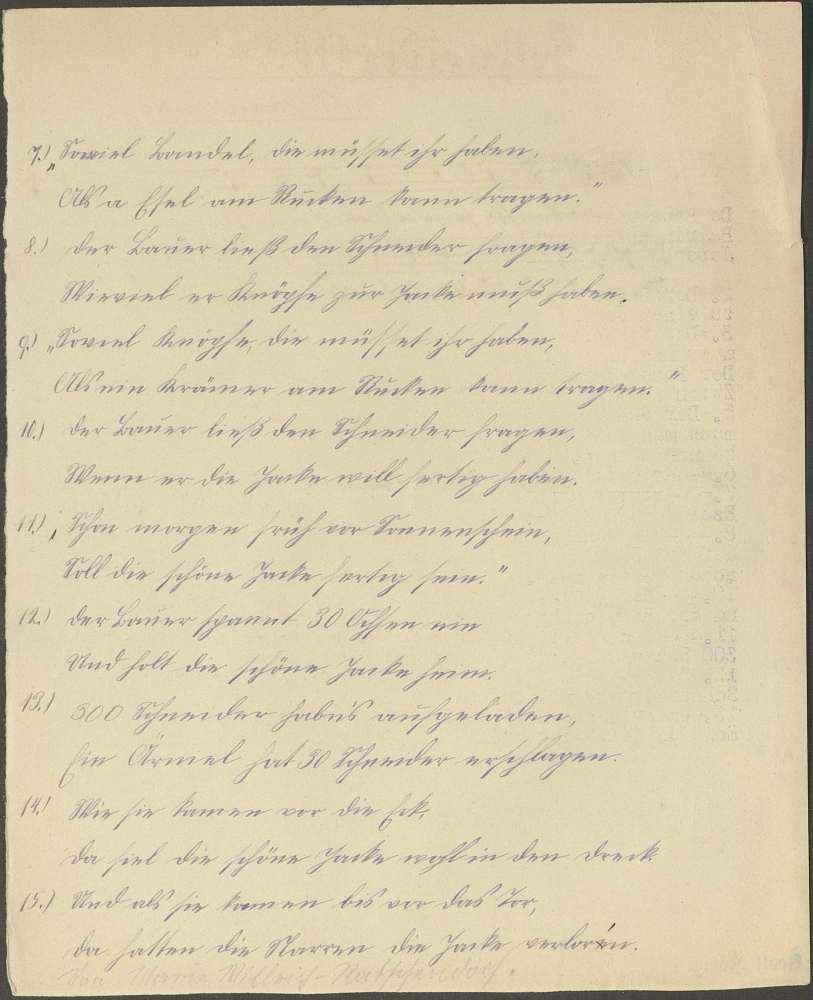 7.) „Soviel Bandel, die müsset ihr haben,
Als a Esel am Rucken kann tragen.“
8.) Der Bauer ließ den Schneider fragen,
Wieviel er Knöpfe zur Jacke muß haben.
9.) „Soviel Knöpfe, die müsset ihr haben,
Als ein Krämer am Rucken kann tragen.“
10.) Der Bauer ließ den Schneider fragen,
Wenn er die Jacke will fertig haben.
11.) „Schon morgen früh vor Sonnenschein,
Soll die schöne Jacke fertig sein.“
12.) Der Bauer spannt 30 Ochsen ein
Und holt die schöne Jacke heim.
13.) 300 Schneider habn's aufgeladen,
Ein Ärmel hat 30 Schneider erschlagen.
14.) Wie sie kamen vor die Eck,
Da fiel die schöne Jacke wohl in den Dreck.
15.) Und als sie kamen bis vor das Tor,
Da hatten die Narren die Jacke verloren.
Von Maria